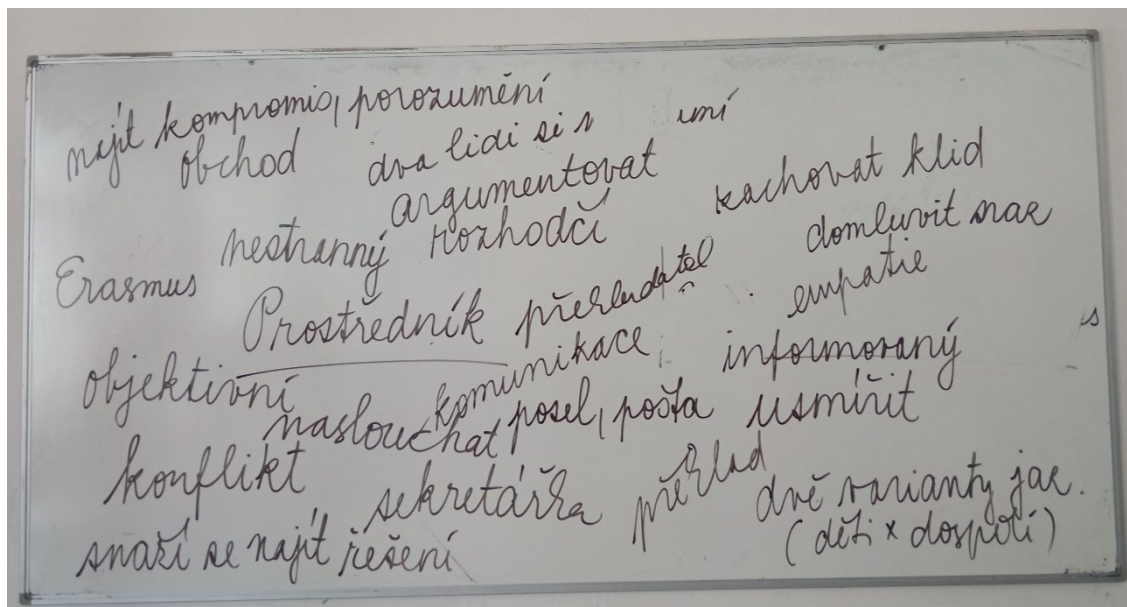 najít kompromis, porozumění
obchod dva lidi si
argumentovat
zachovat klid
nestranný rozhodčí
domluvit sraz
Erasmus
Prostředník překladatel
empatie
objektivní
komunikace
informovaný
naslouchat posel, pošta usmířit
konflikt
sekretářka překlad
dvě varianty jaz.
snaží se najít řešení
(děti x dospělí)